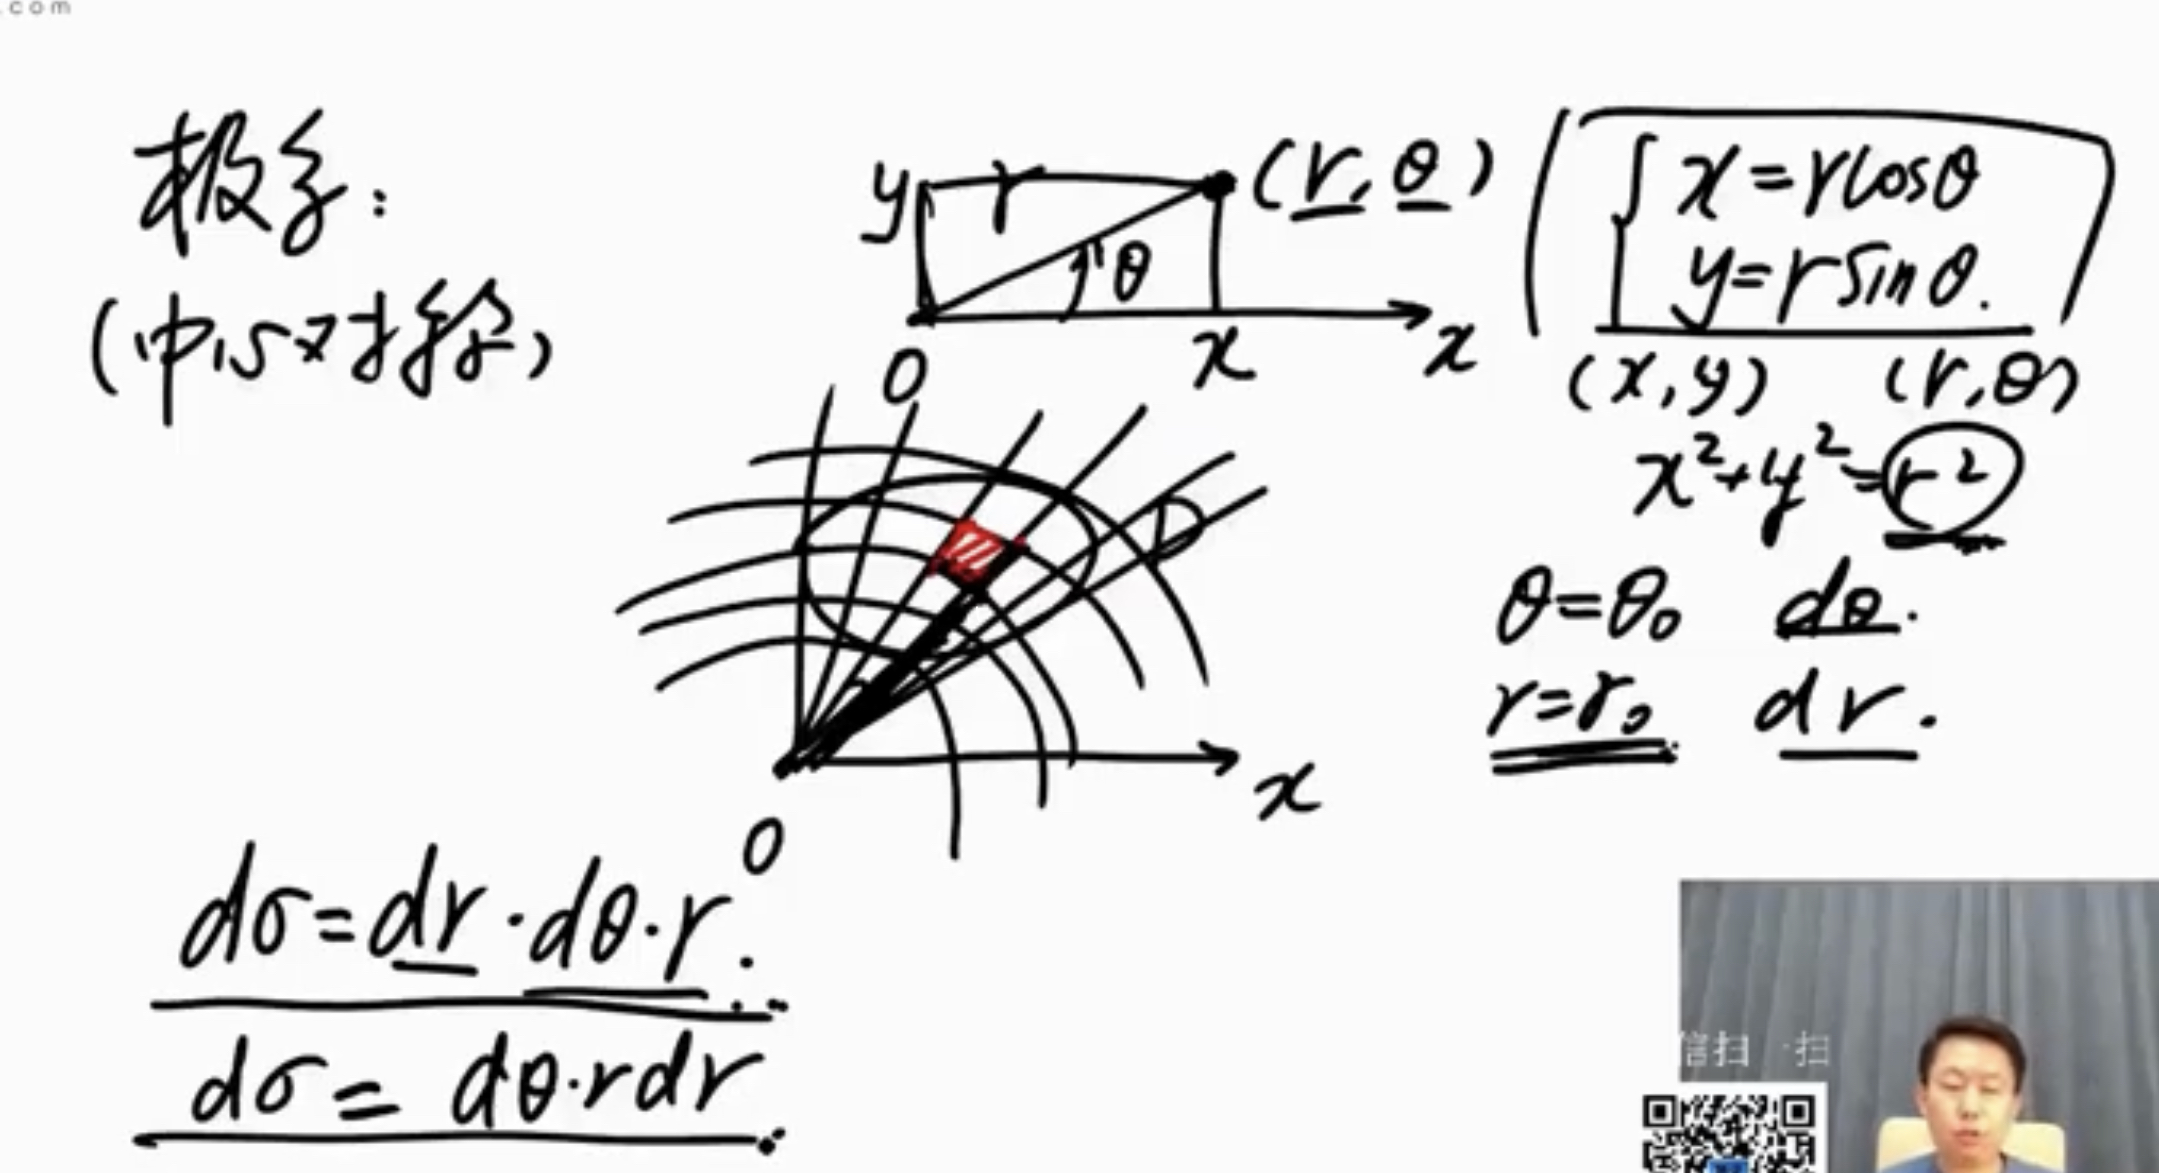 .com
极系:
(中心对称)
y r (r, θ)
θ
0 x x
{ x = r cosθ
y = r sinθ.
(x, y) (r, θ)
x²+y²=r²
D
θ=θ₀ dθ.
r=r₀ dr.
0 x
dσ=dr·dθ·r.
dσ= dθ·rdr
信扫 ·扫